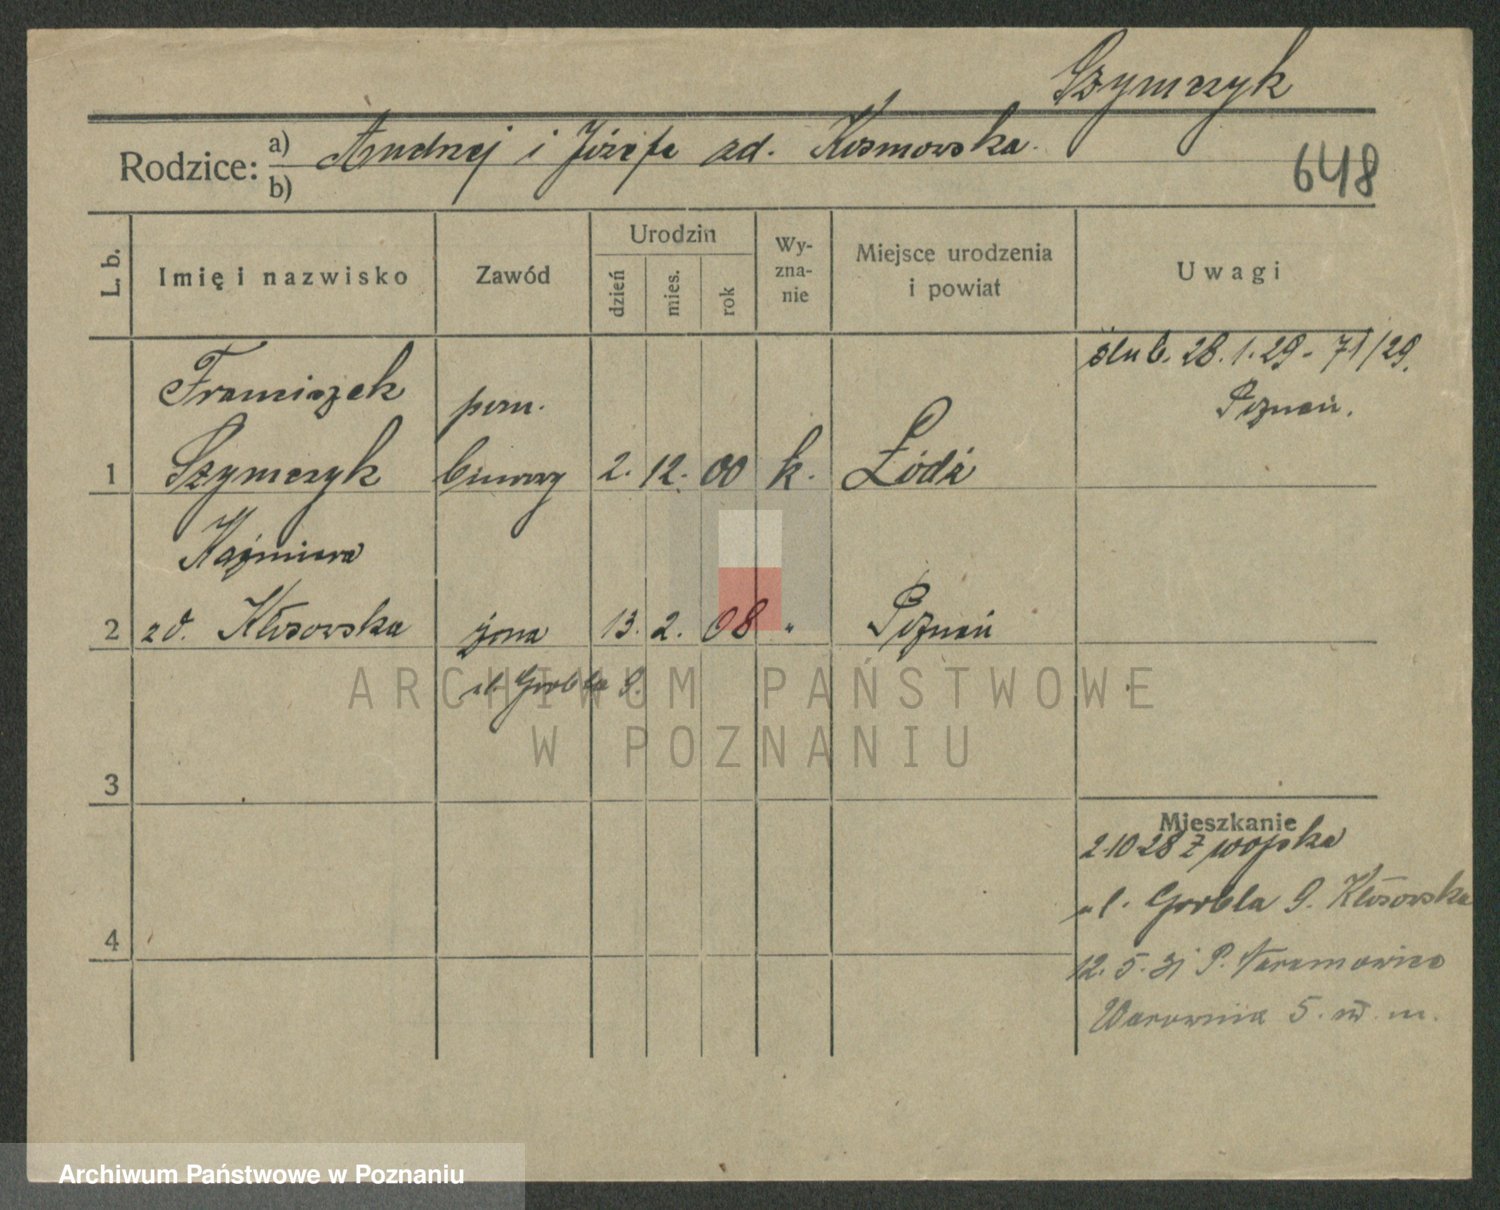 Szymczyk
Rodzice: a) Andrzej i Józefa zd. Kosmowska
b)
648
L. b.
Imię i nazwisko
Zawód
Urodzin
dzień
mies.
rok
Wy-
zna-
nie
Miejsce urodzenia
i powiat
Uwagi
ślub. 28.1.29 - 71/29.
Poznań.
Franciszek
pom.
1 Szymczyk biurowy 2. 12. 00 k. Łódź
Kaźmiera
2 zd. Kłosowska żona 13. 2. 08 " Poznań
ul. Grobla 9.
ARCHIWUM PAŃSTWOWE
W POZNANIU
3
Mieszkanie
2.10.28 z wojska
ul. Grobla 9. Kłosowska
4
12.5.31 P. Naramowice
Warownia 5. m.
Archiwum Państwowe w Poznaniu